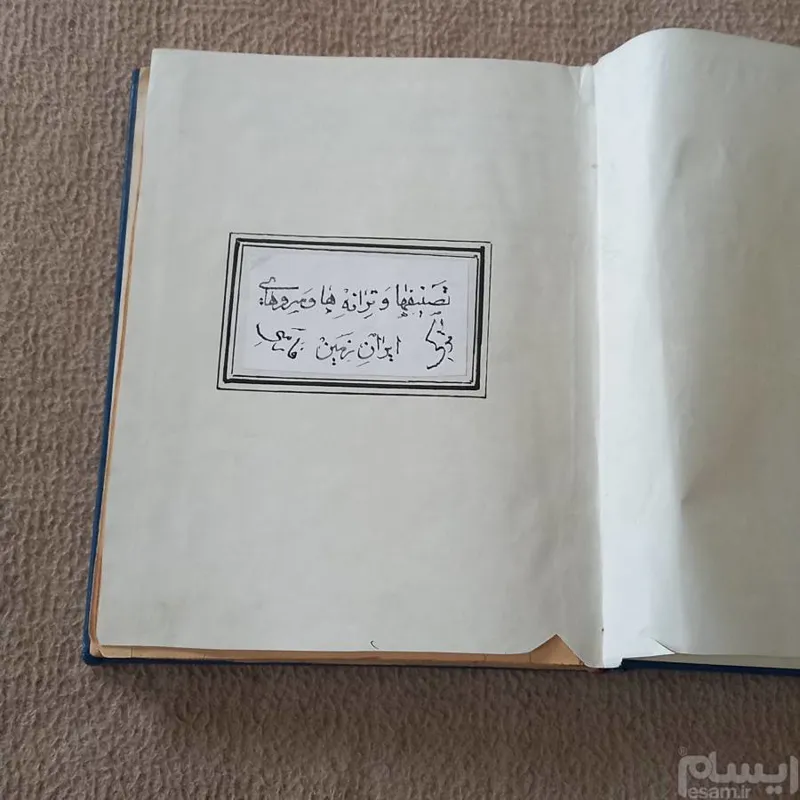 تصنیفها و ترانه ها و سرودهای
ایران زمین
ایسام
esam.ir